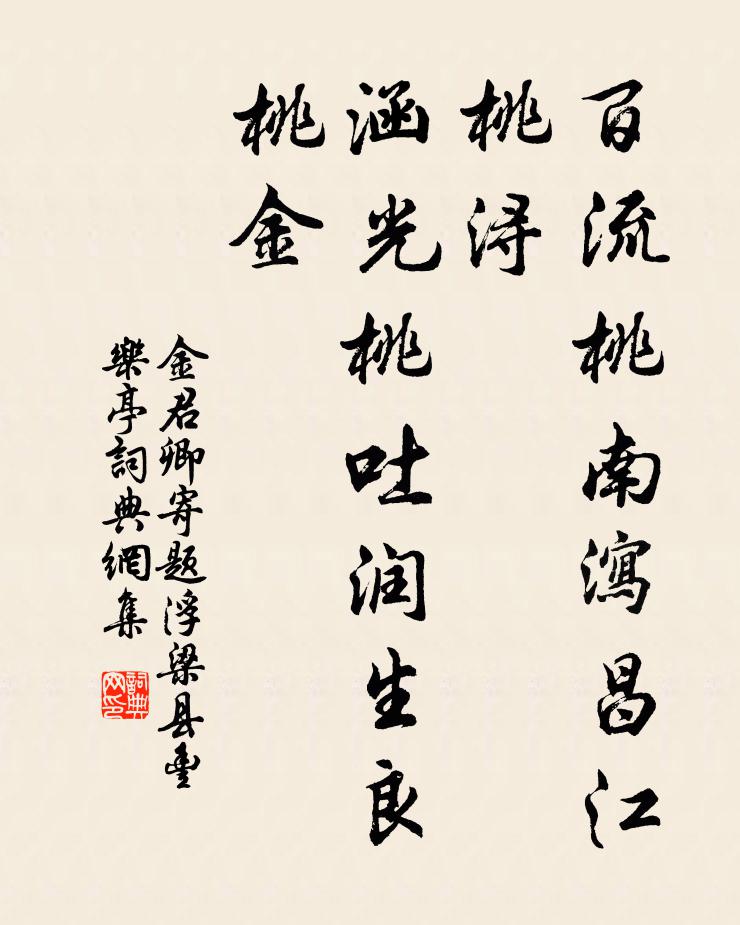 百流桃南瀉昌江
桃浔
涵光桃吐润生良
桃金
金君卿寄题浮梁县豐
樂亭詞典網集
詞典
网印